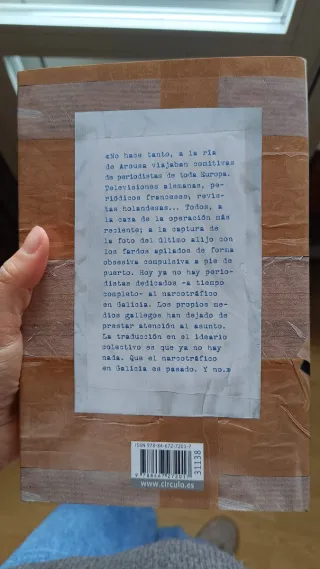 «No hace tanto, a la ría
de Arousa viajaban comitivas
de periodistas de toda Europa.
Televisiones alemanas, pe-
riódicos franceses, revis-
tas holandesas... Todos, a
la caza de la operación más
reciente; a la captura de
la foto del último alijo con
los fardos apilados de forma
obsesiva compulsiva a pie de
puerto. Hoy ya no hay perio-
distas dedicados -a tiempo
completo- al narcotráfico
en Galicia. Los propios me-
dios gallegos han dejado de
prestar atención al asunto.
La traducción en el ideario
colectivo es que ya no hay
nada. Que el narcotráfico
en Galicia es pasado. Y no.»
ISBN 978-84-672-7205-7
9 788467 272057
31138
www.circulo.es